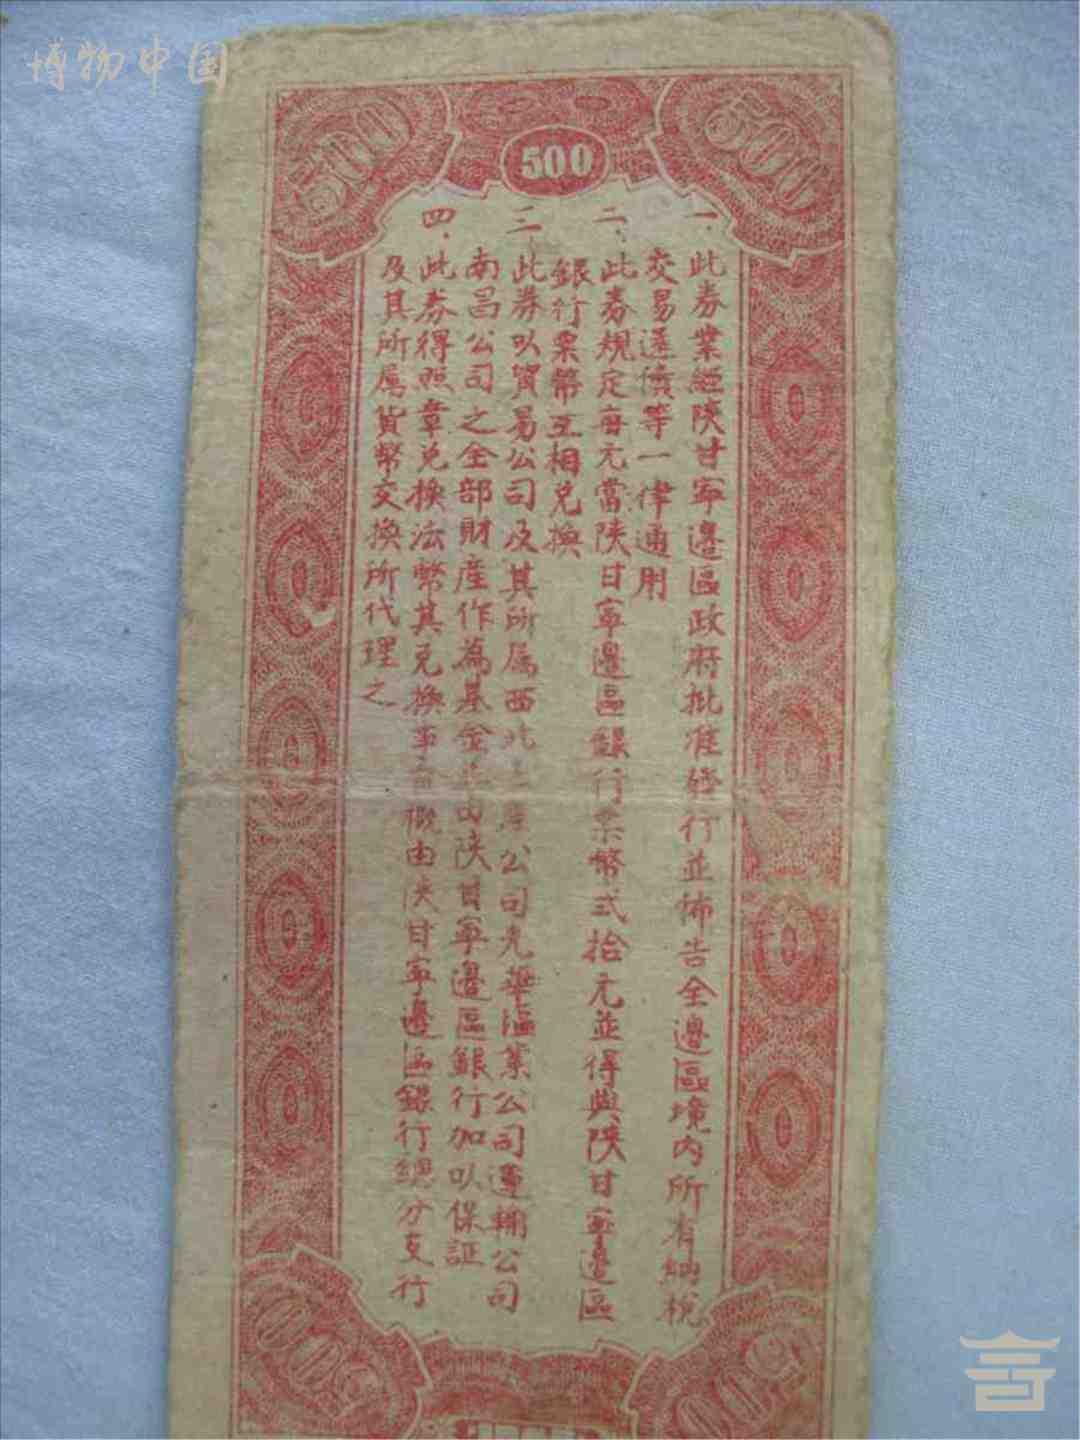 博物中国
500
500
500
一、此券業經陝甘寧邊區政府批准發行並佈告全邊區境内所有納稅
交易還債等一律通用
二、此券規定每元當陝甘寧邊區銀行票幣弍拾元並得與陝甘寧邊區
銀行票幣互相兑換
三、此券以貿易公司及其所属西北土產公司光華塩業公司運輸公司
南昌公司之全部財産作為基金並由陝甘寧邊區銀行加以保証
四、此券得照章兑換法幣其兑換事宜概由陝甘寧邊區銀行總分支行
及其所属貨幣交換所代理之
500
500